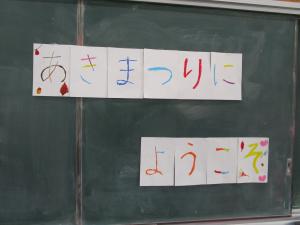 あきまつりに
ようこそ